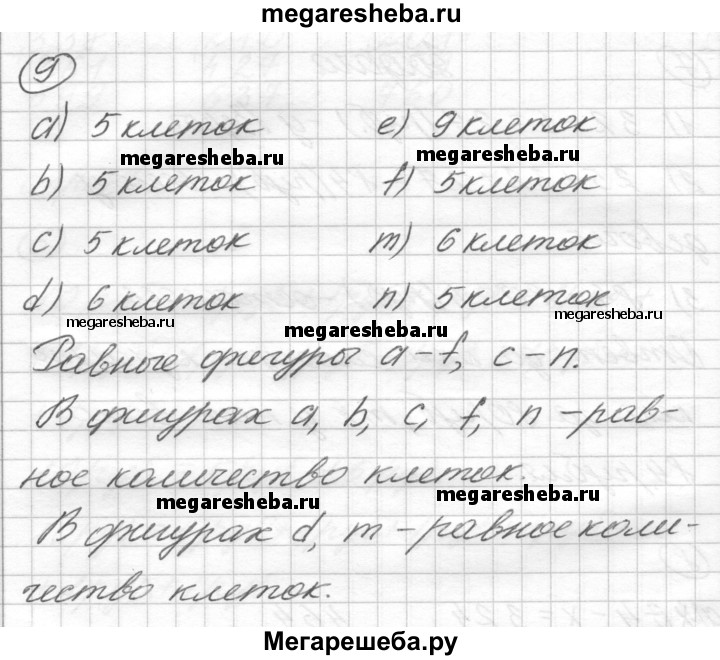 megaresheba.ru
9
a) 5 клеток e) 9 клеток
megaresheba.ru megaresheba.ru
b) 5 клеток f) 5 клеток
c) 5 клеток m) 6 клеток
d) 6 клеток n) 5 клеток
megaresheba.ru megaresheba.ru megaresheba.ru
Равные фигуры a – f, c – n.
В фигурах a, b, c, f, n – рав-
ное количество клеток.
megaresheba.ru megaresheba.ru
В фигурах d, m – равное коли-
чество клеток.
Мегарешеба.ру